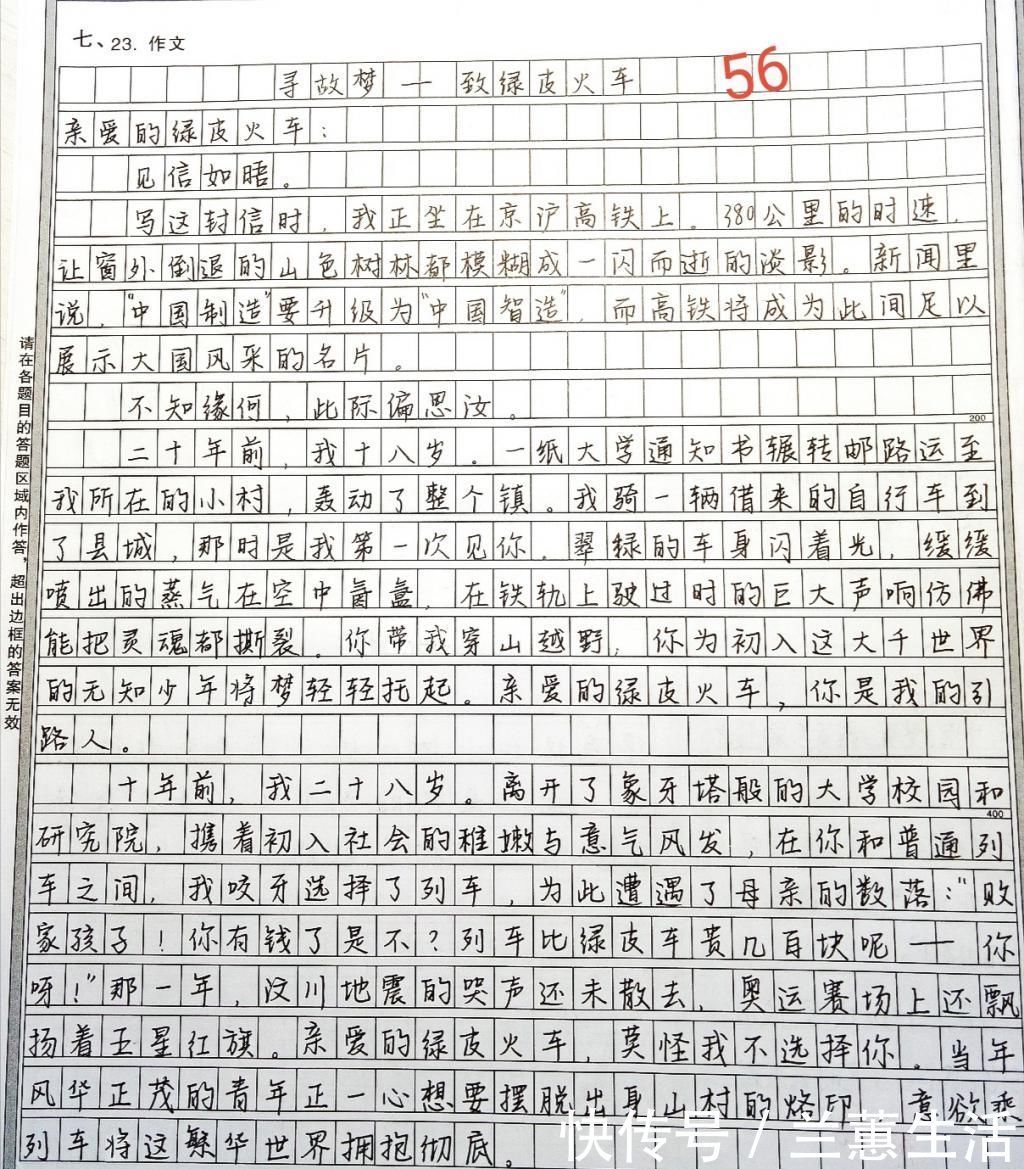 七、23. 作文
寻故梦 — 致绿皮火车
56
亲爱的绿皮火车：
见信如晤。
写这封信时，我正坐在京沪高铁上。380公里的时速，
让窗外倒退的山色树林都模糊成一闪而逝的淡影。新闻里
说，“中国制造”要升级为“中国智造”，而高铁将成为此间足以
展示大国风采的名片。
不知缘何，此际偏思汝。
200
二十年前，我十八岁。一纸大学通知书辗转邮路运至
我所在的小村，轰动了整个镇。我骑一辆借来的自行车到
了县城，那时是我第一次见你。翠绿的车身闪着光，缓缓
喷出的蒸气在空中氤氲，在铁轨上驶过时的巨大声响仿佛
能把灵魂都撕裂。你带我穿山越野，你为初入这大千世界
的无知少年将梦轻轻托起。亲爱的绿皮火车，你是我的引
路人。
十年前，我二十八岁。离开了象牙塔般的大学校园和
400
研究院，携着初入社会的稚嫩与意气风发，在你和普通列
车之间，我咬牙选择了列车，为此遭遇了母亲的数落：“败
家孩子！你有钱了是不？列车比绿皮车贵几百块呢——你
呀！”那一年，汶川地震的哭声还未散去，奥运赛场上还飘
扬着五星红旗。亲爱的绿皮火车，莫怪我不选择你。当年
风华正茂的青年正一心想要摆脱出身山村的烙印，意欲乘
列车将这繁华世界拥抱彻底。
请在各题目的答题区域内作答，超出边框的答案无效
快传号 / 兰蕙生活